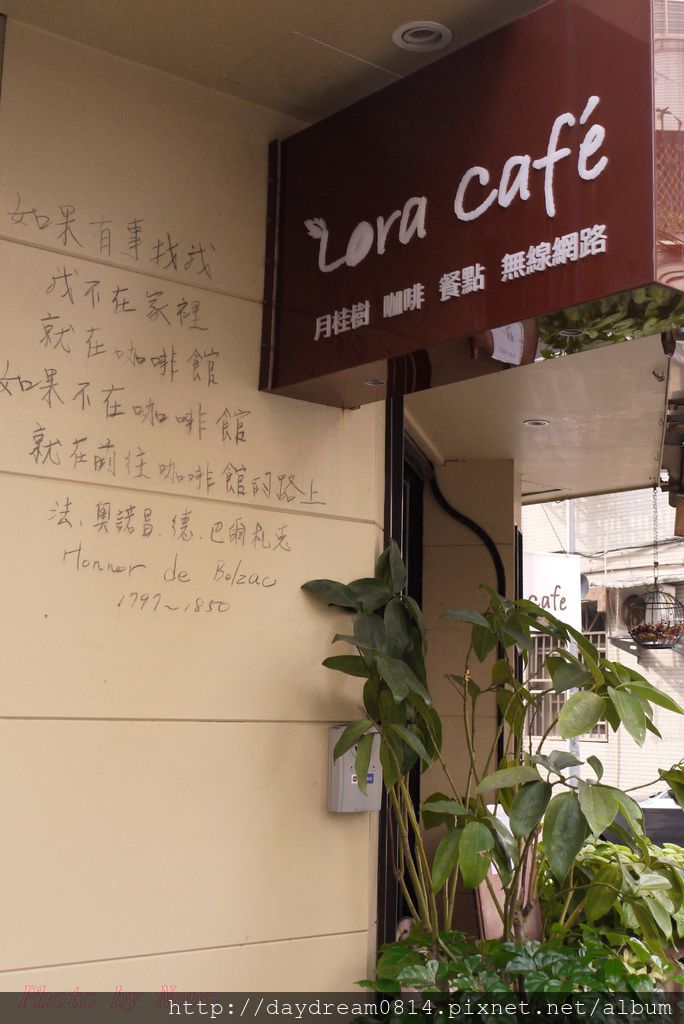 Lora café
月桂樹 咖啡 餐點 無線網路
如果有事找我
我不在家裡
就在咖啡館
如果不在咖啡館
就在前往咖啡館的路上
法.奧諾昌.德.巴爾札克
Honnor de Bolzac
1797~1850
cafe
Photo by Nana
http://daydream0814.pixnet.net/album